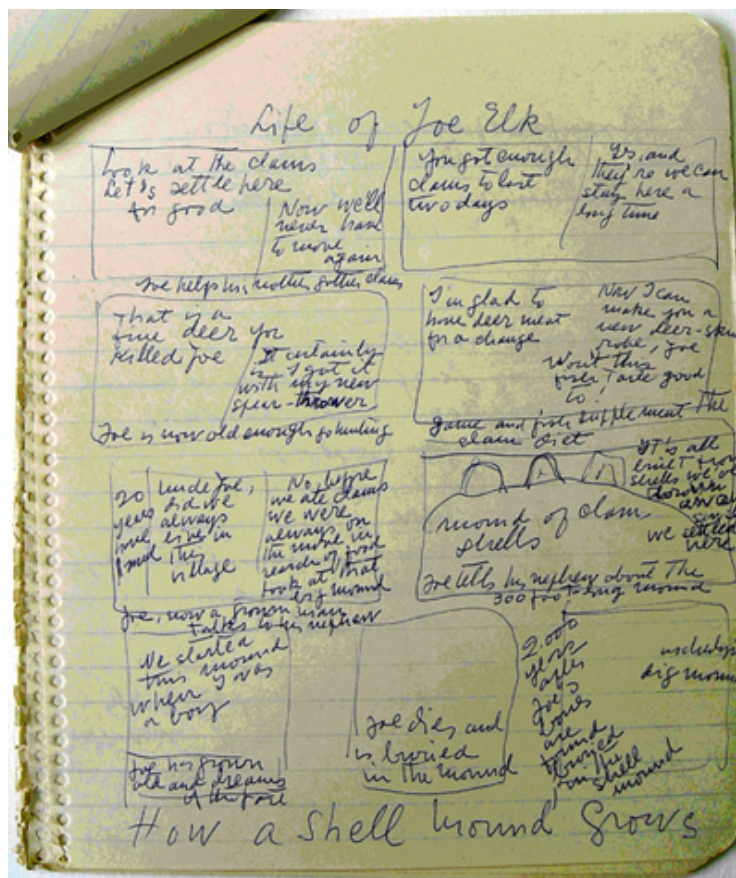 Life of Joe Elk
Look at the clams
Let's settle here
for good
Now we'll
never have
to move
again
Joe helps his mother gather clams
You got enough
clams to last
two days
Yes, and
we can
stay here a
long time
That is a
fine deer you
killed Joe
It certainly
is I got it
with my new
spear-thrower
Joe is now old enough go hunting
I'm glad to
have deer meat
for a change
Now I can
make you a
new deer-skin
robe, Joe
Won't this
taste good
to!
Game and fish supplement the
clam diet
20
years
have
Uncle Joe,
did we
always
live in
this
village
No, before
we ate clams
we were
always on
the move in
search of food
Look at that
big mound
Joe, now a grown man
talks to his nephew
It's all
built from
shells we've
thrown
away
since
we settled
here
mound of clam
shells
Joe tells his nephew about the
300 foot-long mound
We started
this mound
when I was
a boy
Joe has grown
old and dreams
of the past
Joe dies and
is buried
in the mound
2.000
years
after
Joe's
bones
are
found
buried
in the
shell
mound
dig mound
How a Shell Mound Grows